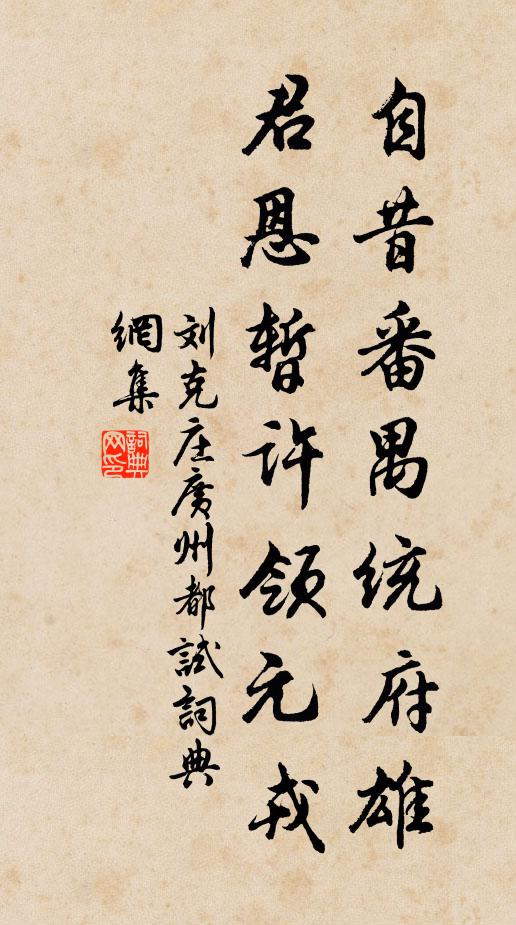 自昔番禺统府雄
君恩暂许领元戎
刘克庄廣州都試詞典
網集
詞典网印